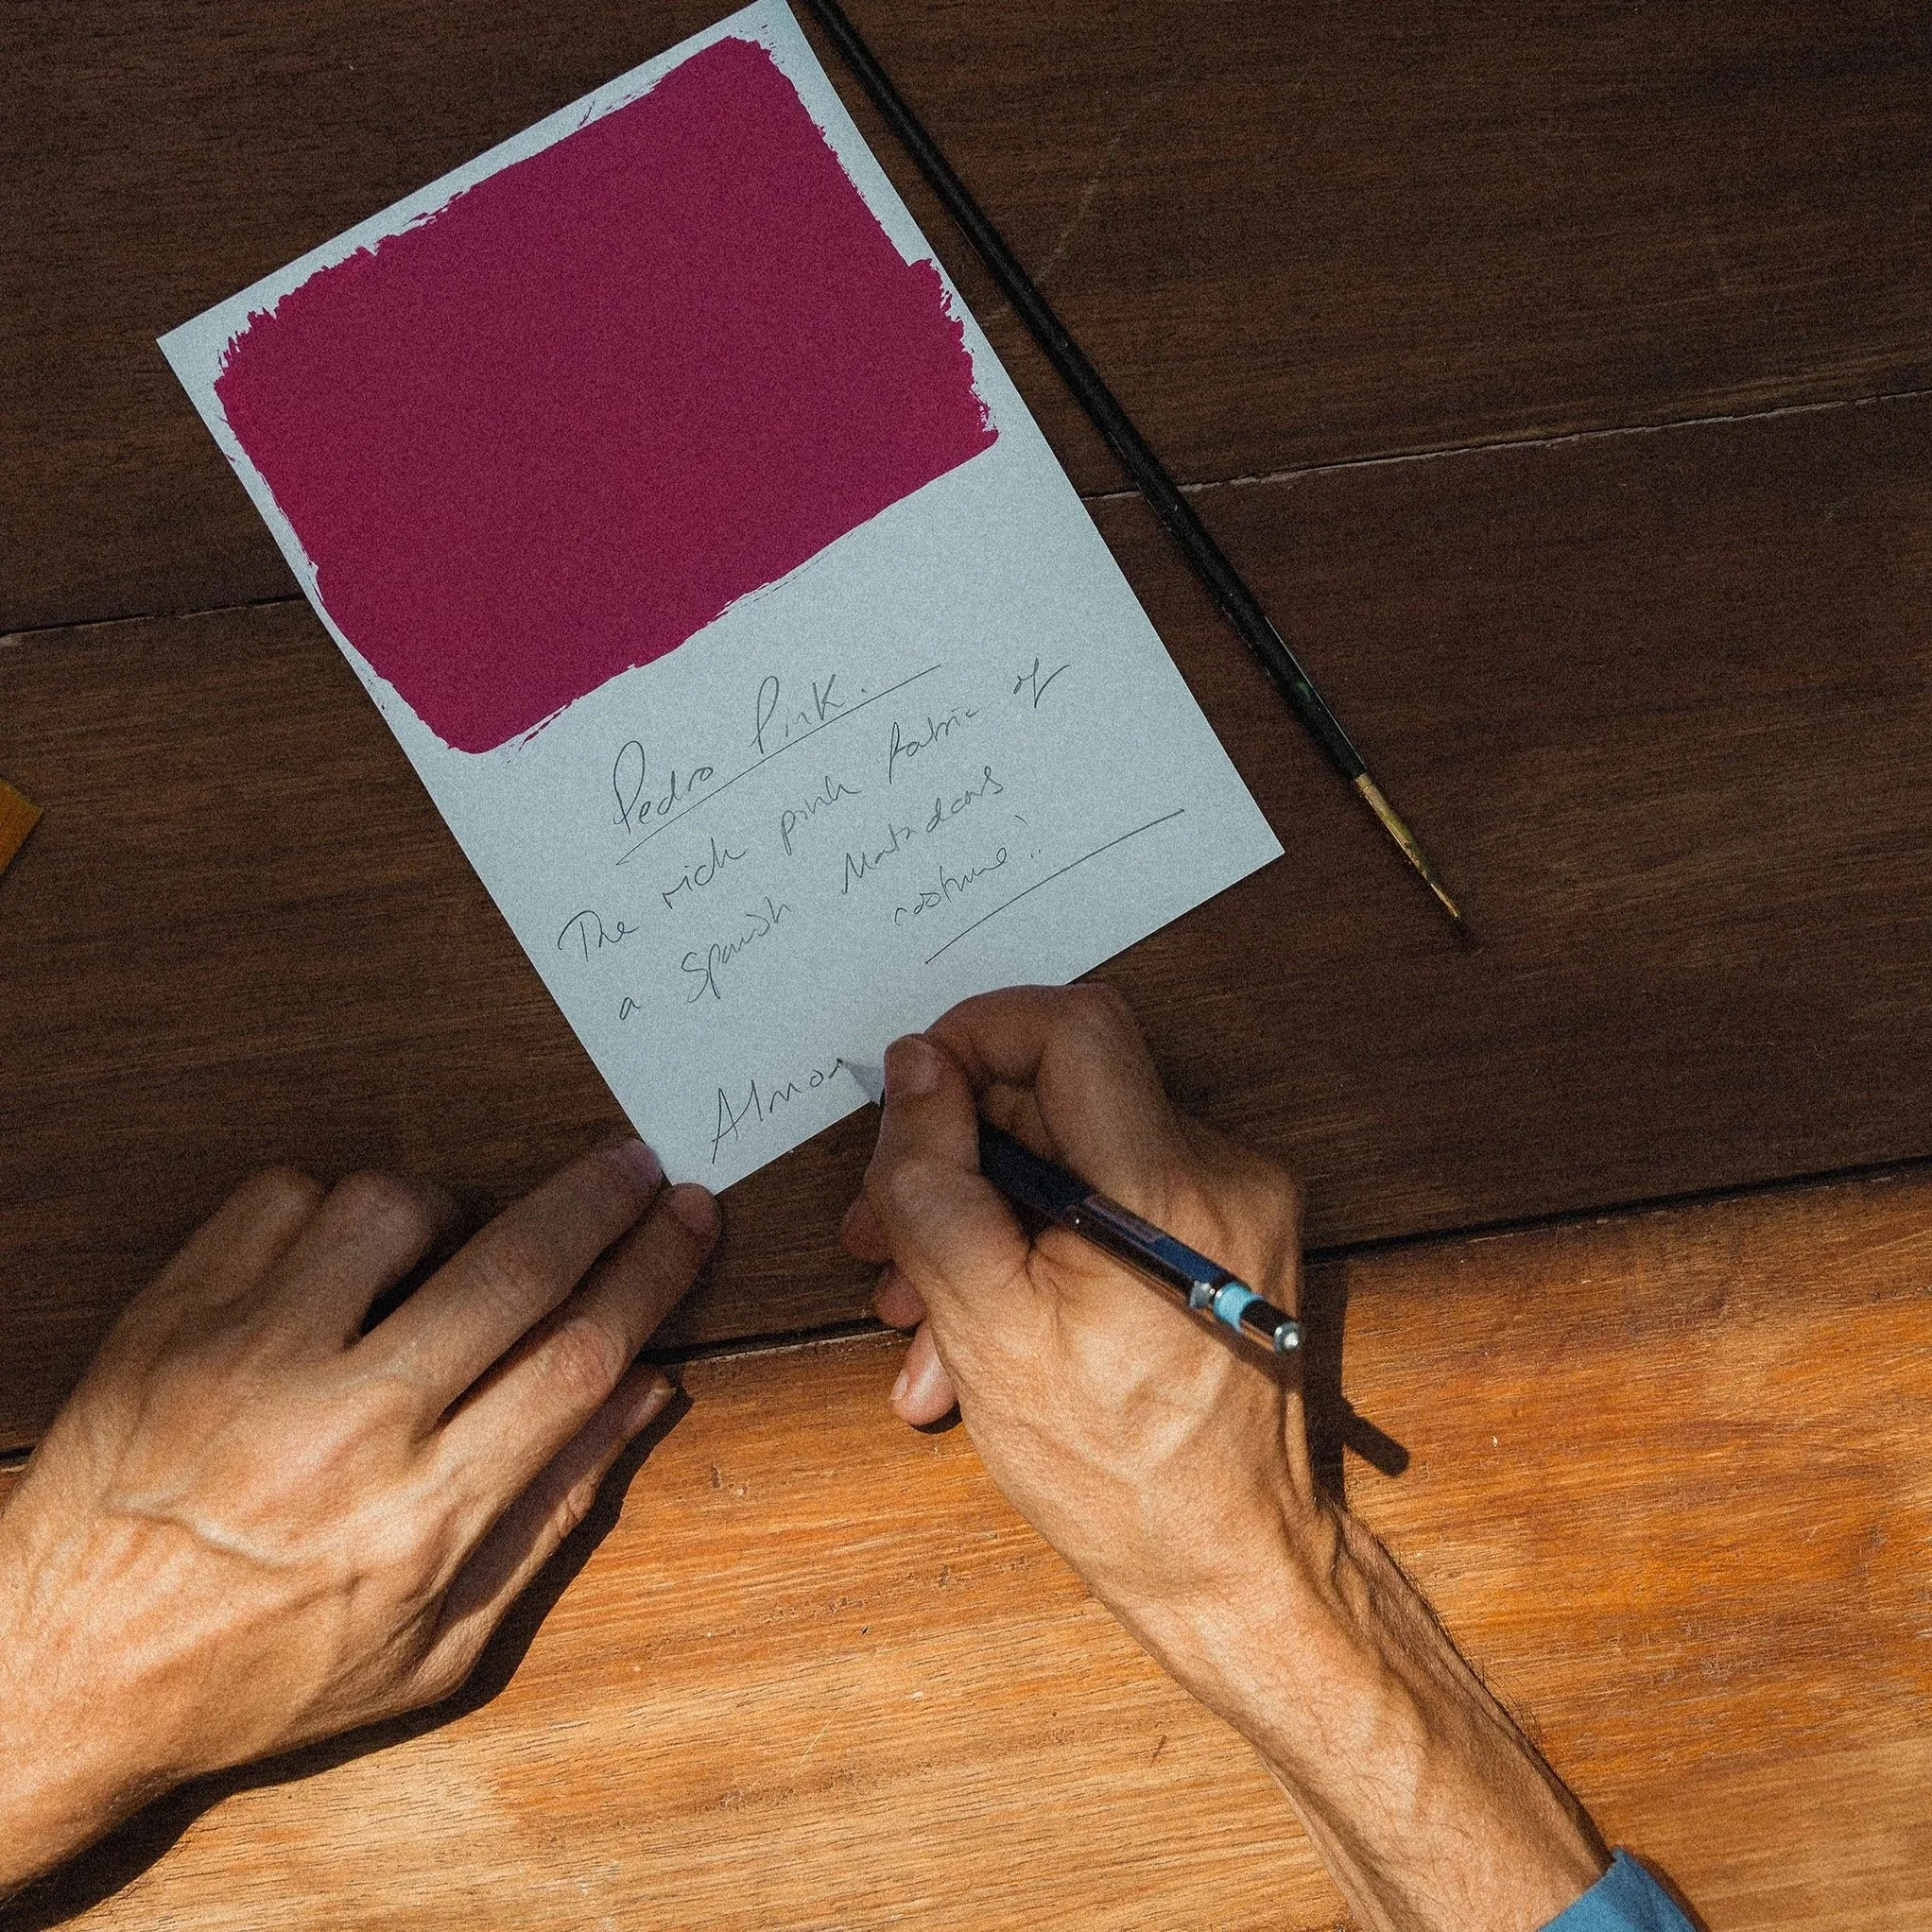 Pedro Pink.
The rich pink fabric of
a Spanish Matadors
costume!
Almo